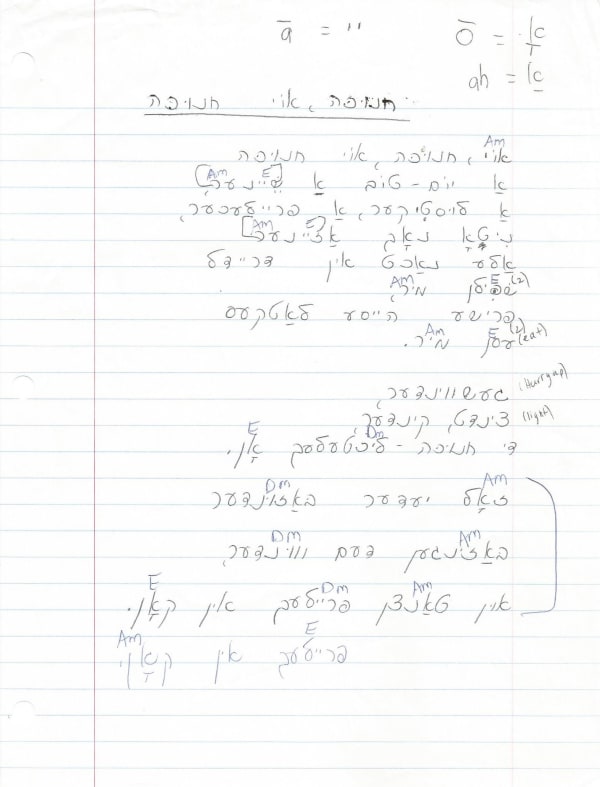 ā = ״   ō = אָ
ah = אַ
חנוכה, אוי חנוכה
Am
אוי, חנוכה, אוי חנוכה
E Am
אַ יום-טוב אַ [שיינער,]
אַ לוסטיקער, אַ פריילעכער,
E Am
ניטאָ נאָך [אַזיינער]
אַלע נאַכט אין דריידל
E (2) Am
שפּילן מיר,
פרישע הייסע לאַטקעס
E (2) Am
עסן (eat) מיר.
געשווינדער, (Hurry up)
צינדט, קינדער, (light)
Dm E
די חנוכה-ליכטעלעך אָן.
Am Dm
זאָל יעדער באַזונדער
Am Dm
באַזינגען דעם ווונדער,
Am Dm E
און טאַנצן פריילעך אין קאָן.
E Am
פריילעך אין קאָן